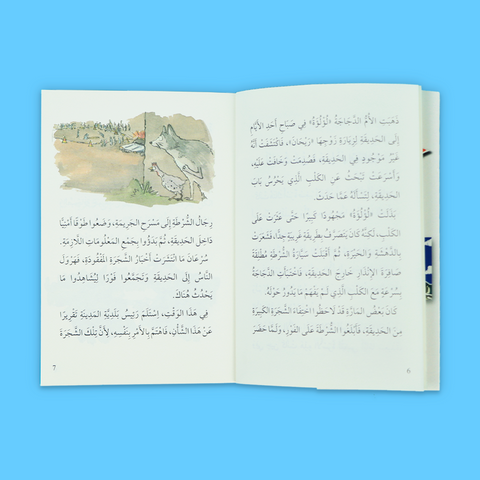 ذَهَبَتِ الأُمُّ الدَّجَاجَةُ «لُؤْلُؤَة» فِي صَبَاحِ أَحَدِ الأَيَّامِ
إِلَى الحَدِيقَةِ لِزِيَارَةِ زَوْجِهَا «رَيْحَان»، فَاكْتَشَفَتْ أَنَّهُ
غَيْرُ مَوْجُودٍ فِي الحَدِيقَةِ، فَصُدِمَتْ وَخَافَتْ عَلَيْهِ،
وَأَسْرَعَتْ تَبْحَثُ عَنِ الكَلْبِ الَّذِي يَحْرُسُ بَابَ
الحَدِيقَةِ، لِتَسْأَلَهُ عَمَّا حَدَثَ.
بَذَلَتْ «لُؤْلُؤَة» مَجْهُودًا كَبِيرًا حَتَّى عَثَرَتْ عَلَى
الكَلْبِ، لَكِنَّهُ كَانَ يَتَصَرَّفُ بِطَرِيقَةٍ غَرِيبَةٍ جِدًّا، فَشَعَرَتْ
بِالدَّهْشَةِ وَالحَيْرَةِ، ثُمَّ أَقْبَلَتْ سَيَّارَةُ الشُّرْطَةِ مُطْلِقَةً
صَافِرَةَ الإِنْذَارِ خَارِجَ الحَدِيقَةِ، فَاخْتَبَأَتِ الدَّجَاجَةُ
بِسُرْعَةٍ مَعَ الكَلْبِ الَّذِي لَمْ يَفْهَمْ مَا يَدُورُ حَوْلَهُ.
كَانَ بَعْضُ المَارَّةِ قَدْ لَاحَظُوا اخْتِفَاءَ الشَّجَرَةِ الكَبِيرَةِ
مِنَ الحَدِيقَةِ، فَأَبْلَغُوا الشُّرْطَةَ عَلَى الفَوْرِ، وَلَمَّا حَضَرَ
6
رِجَالُ الشُّرْطَةِ إِلَى مَسْرَحِ الجَرِيمَةِ، وَضَعُوا طَوْقًا أَمْنِيًّا
دَاخِلَ الحَدِيقَةِ، ثُمَّ بَدَؤُوا بِجَمْعِ المَعْلُومَاتِ اللَّازِمَةِ.
سُرْعَانَ مَا انْتَشَرَتْ أَخْبَارُ الشَّجَرَةِ المَفْقُودَةِ، فَهَرْوَلَ
النَّاسُ إِلَى الحَدِيقَةِ وَتَجَمَّعُوا فَوْرًا لِيُشَاهِدُوا مَا
يَحْدُثُ هُنَاكَ.
فِي هَذَا الوَقْتِ، اِسْتَلَمَ رَئِيسُ بَلَدِيَّةِ المَدِينَةِ تَقْرِيرًا
عَنْ هَذَا الشَّأْنِ، فَاهْتَمَّ بِالأَمْرِ بِنَفْسِهِ، لِأَنَّ تِلْكَ الشَّجَرَةَ
7